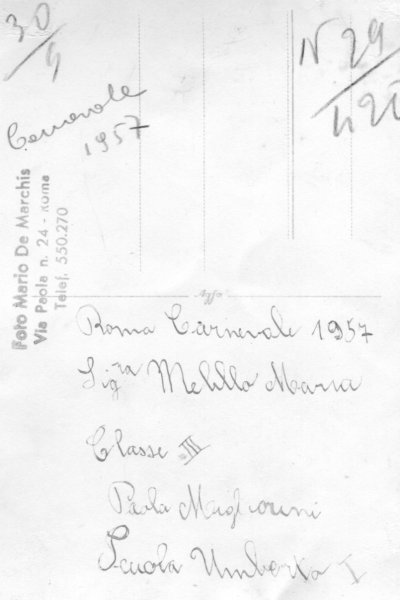 30/9
N 29
Carnevale
1957
Foto Mario De Marchis
Via Paola n. 24 - Roma
Telef. 550.270
Roma Carnevale 1957
Sig.ra Melillo Maria
Classe III
Paola Magliorini
Scuola Umberto I